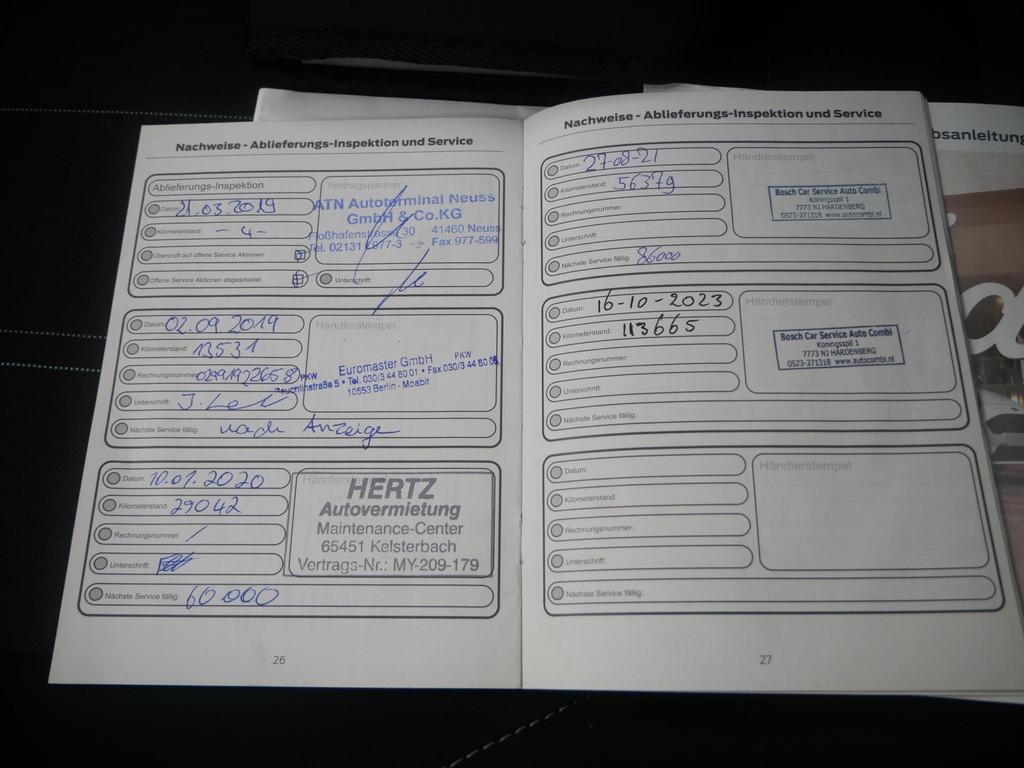 Nachweise - Ablieferungs-Inspektion und Service
Ablieferungs-Inspektion
Datum: 21.03.2019
Kilometerstand: - 4 -
Überprüft auf offene Service Aktionen
Offene Service Aktionen abgearbeitet:
Vertragspartner
ATN Autoterminal Neuss
GmbH & Co.KG
Floßhafenstrasse 30 41460 Neuss
Tel. 02131 977-3 Fax 977-599
Unterschrift:
Datum: 02.09.2019
Kilometerstand: 13531
Rechnungsnummer:
Unterschrift:
Nächste Service fällig: nach Anzeige
Händlerstempel
Euromaster GmbH PKW
PKW 5 • Tel. 030/3 44 80 01 • Fax 030/3 44 80
10553 Berlin - Moabit
Datum: 10.01.2020
Kilometerstand: 29042
Rechnungsnummer: /
Unterschrift:
Nächste Service fällig: 60 000
HERTZ
Autovermietung
Maintenance-Center
65451 Kelsterbach
Vertrags-Nr.: MY-209-179
26
Nachweise - Ablieferungs-Inspektion und Service
Datum: 27-08-21
Kilometerstand: 56379
Rechnungsnummer:
Unterschrift:
Nächste Service fällig: 86000
Händlerstempel
Bosch Car Service Auto Combi
Koningsspil 1
7773 NJ HARDENBERG
0523-271318 www.autocombi.nl
Datum: 16-10-2023
Kilometerstand: 113665
Rechnungsnummer:
Unterschrift:
Nächste Service fällig:
Händlerstempel
Bosch Car Service Auto Combi
Koningsspil 1
7773 NJ HARDENBERG
0523-271318 www.autocombi.nl
Datum:
Kilometerstand:
Rechnungsnummer:
Unterschrift:
Nächste Service fällig:
Händlerstempel
27
bsanleitung